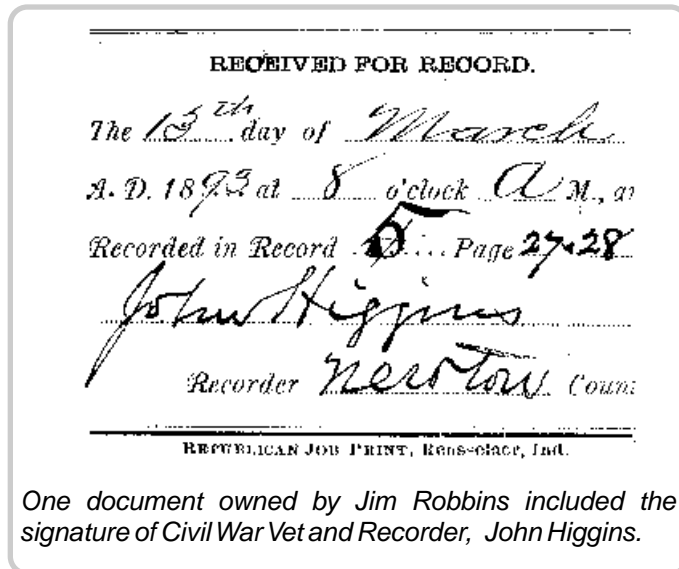 RECEIVED FOR RECORD.
The 13th day of March
A. D. 1893 at 8 o'clock A M., a
Recorded in Record 5 Page 27.28
John Higgins
Recorder Newton Coun
REPUBLICAN JOB PRINT, Rensselaer, Ind.
One document owned by Jim Robbins included the
signature of Civil War Vet and Recorder, John Higgins.